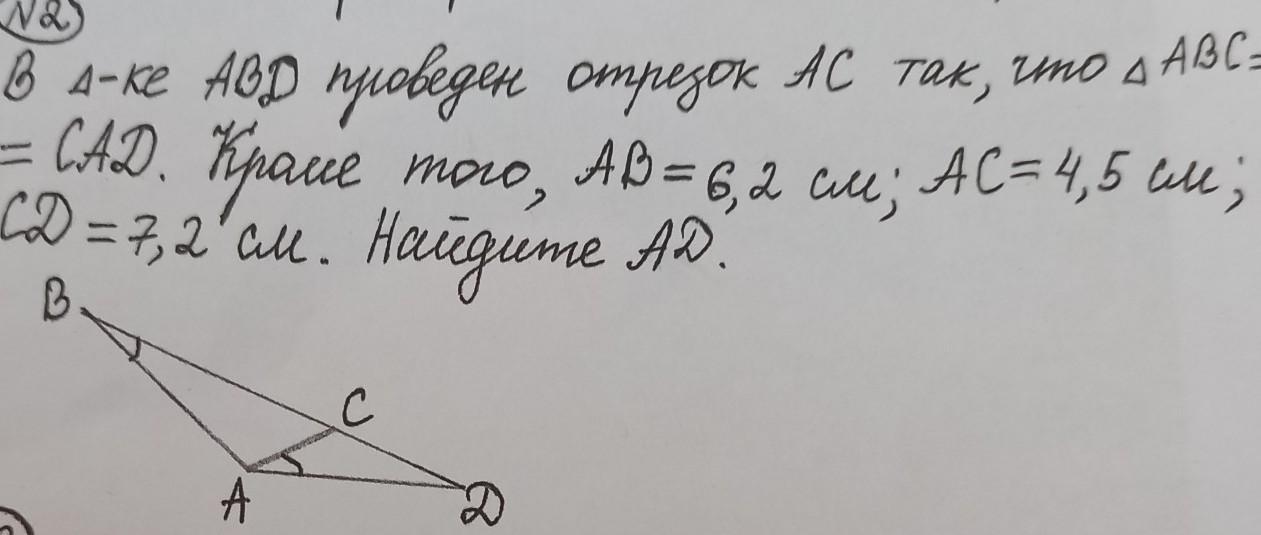 N2
В Δ-ке ABD проведен отрезок AC так, что Δ ABC=
= CAD. Кроме того, AB = 6,2 см; AC = 4,5 см;
CD = 7,2 см. Найдите AD.
B
C
A
D